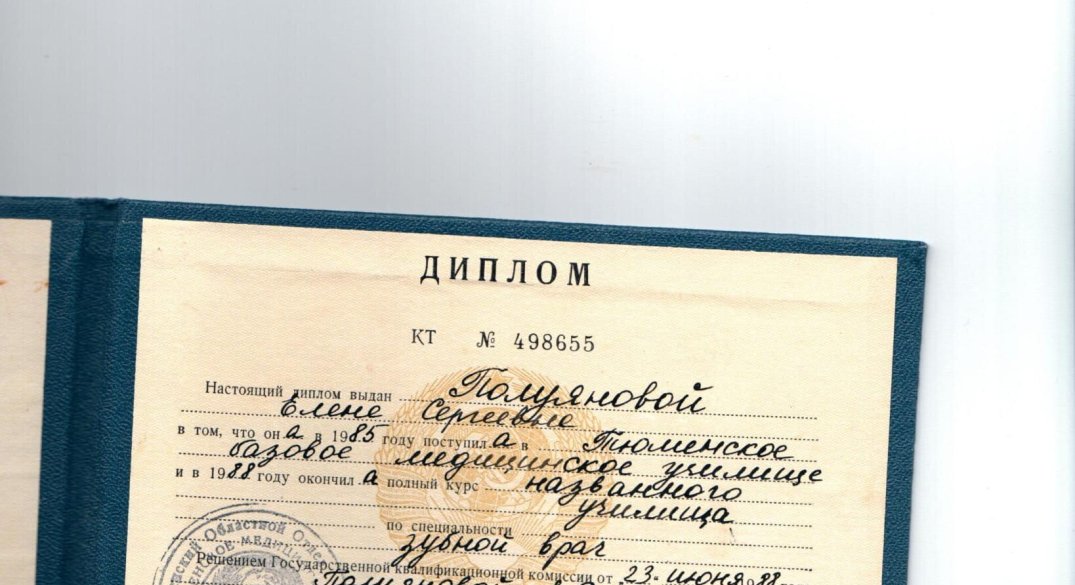 ДИПЛОМ
КТ № 498655
Настоящий диплом выдан Полуяновой
Елене Сергеевне
в том, что она в 1985 году поступила в Тюменское
базовое медицинское училище
и в 1988 году окончила полный курс названного
училища
по специальности
зубной врач
Решением Государственной квалификационной комиссии от 23 июня 1988
Областной